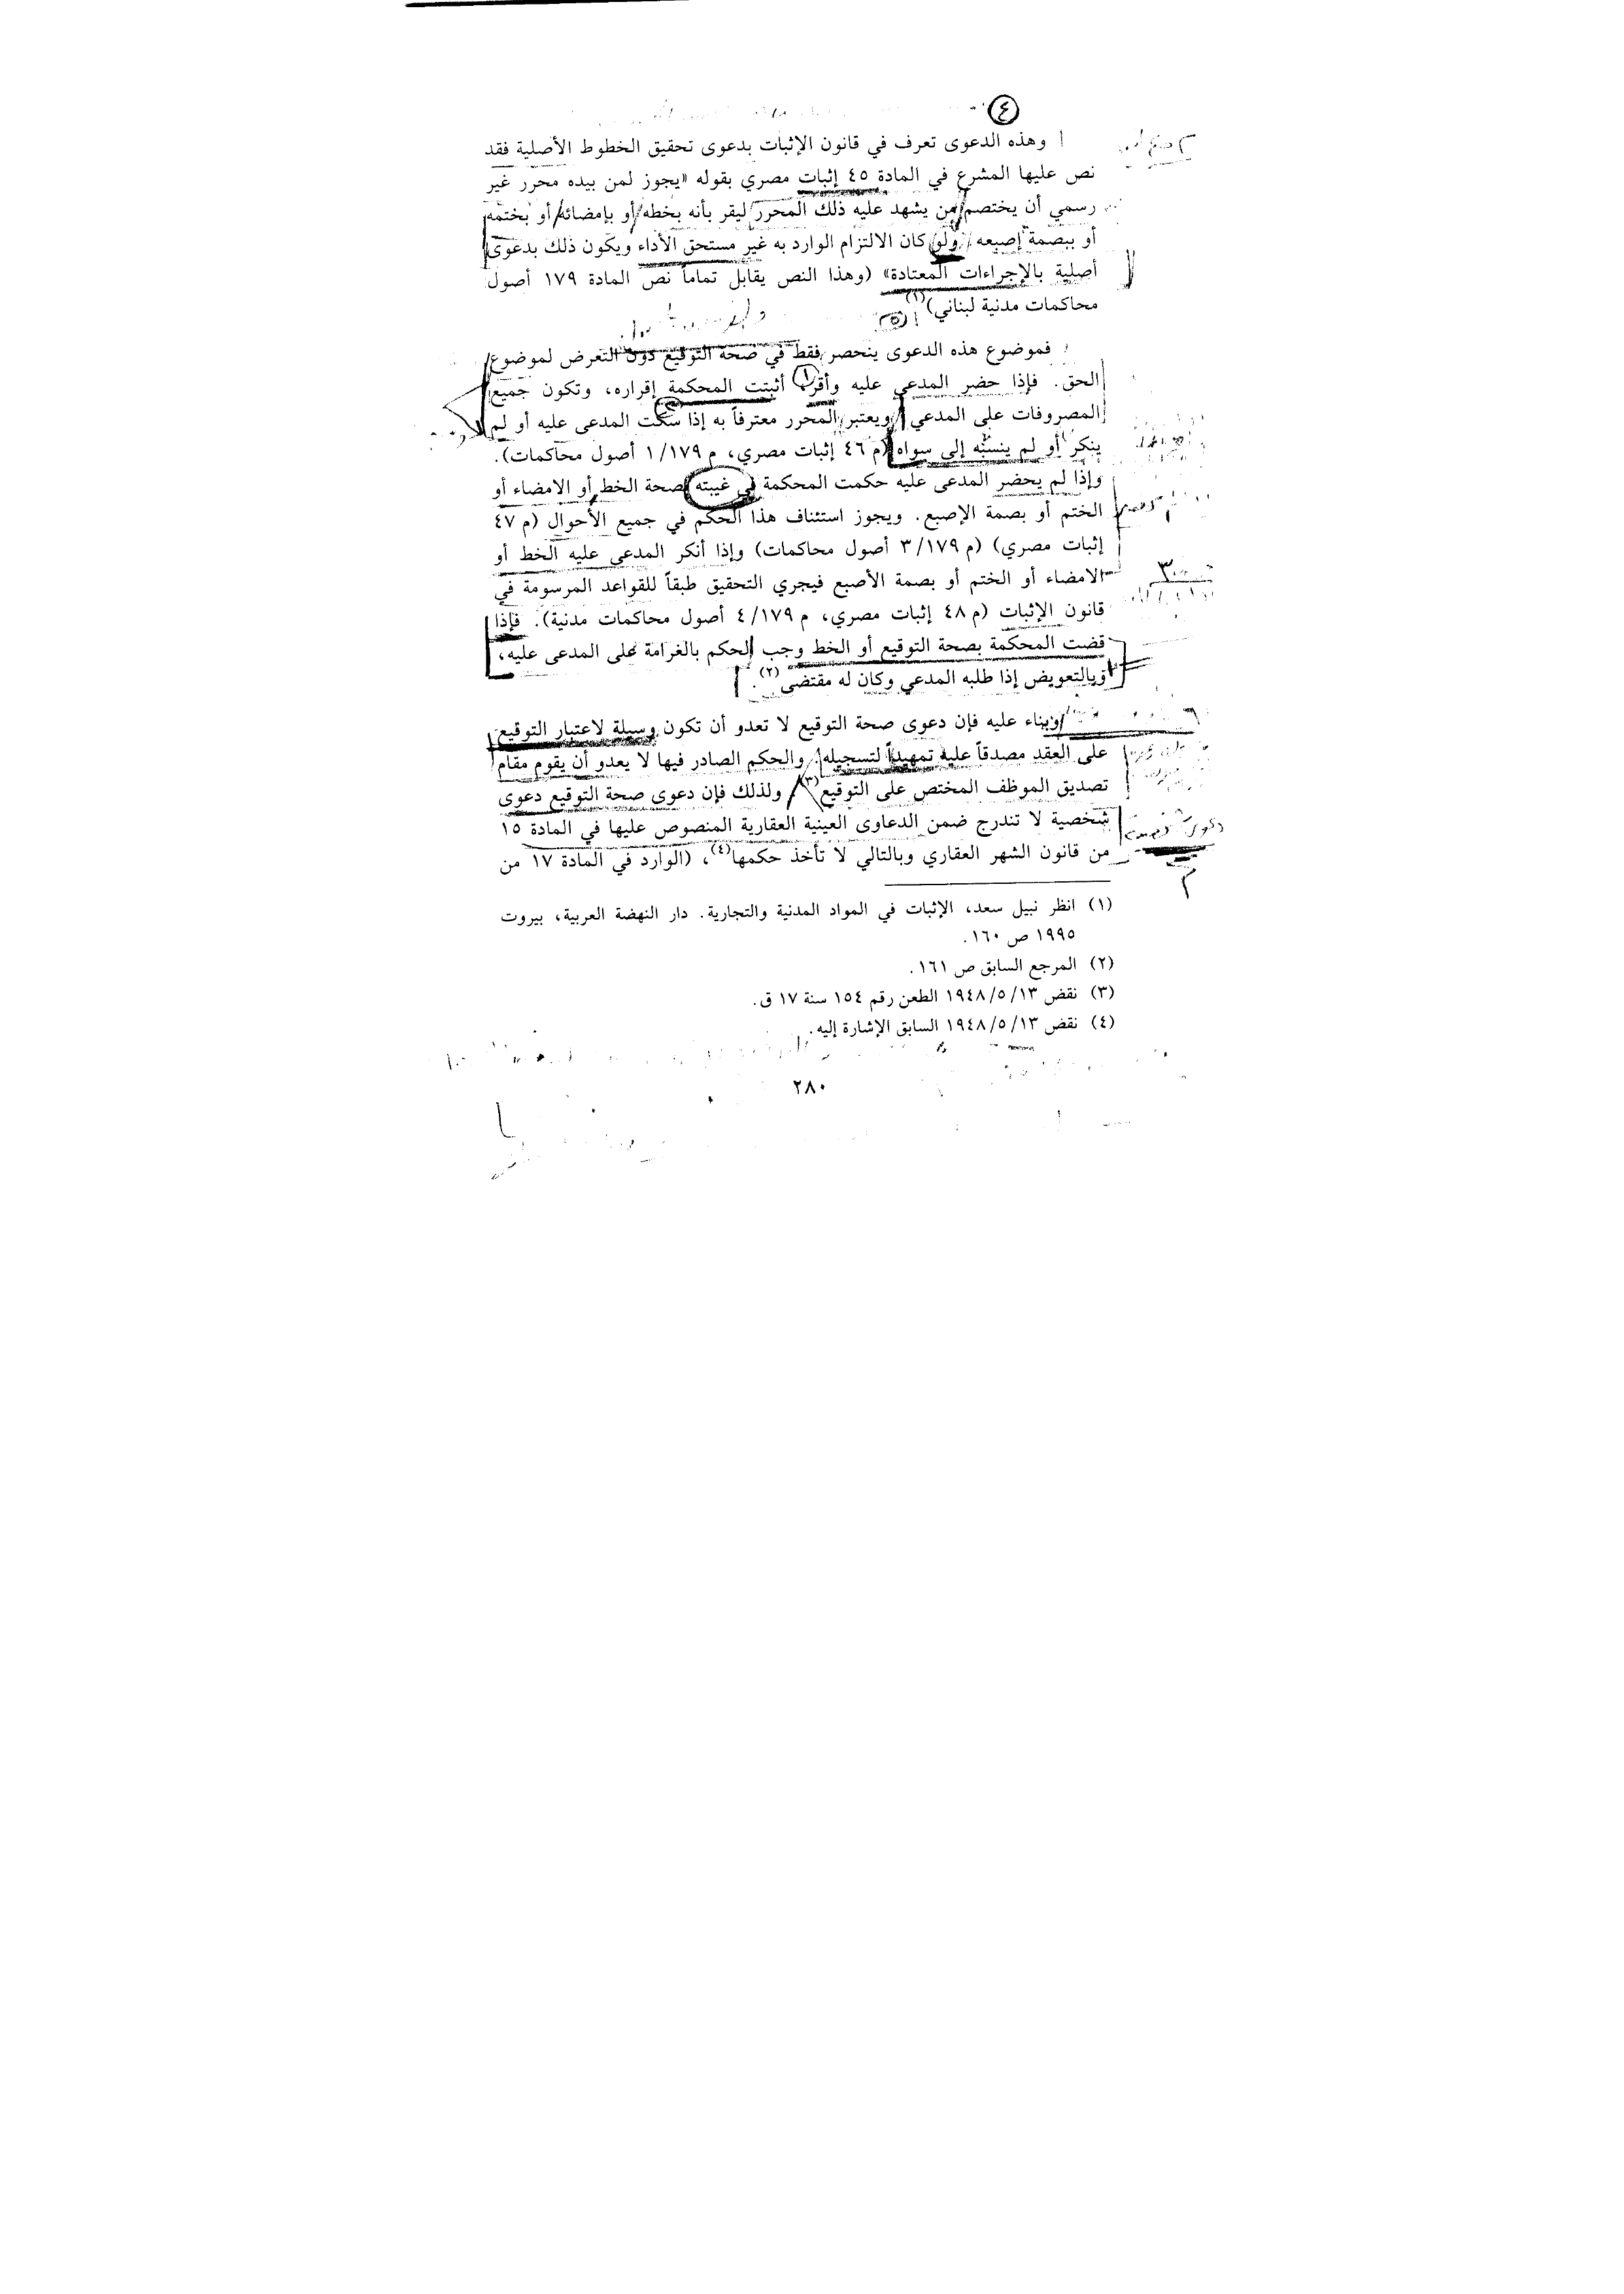 ٤
وهذه الدعوى تعرف في قانون الإثبات بدعوى تحقيق الخطوط الأصلية فقد
نص عليها المشرع في المادة ٤٥ إثبات مصري بقوله «يجوز لمن بيده محرر غير
رسمي أن يختصم من يشهد عليه ذلك المحرر ليقر بأنه بخطه أو بإمضائه أو بختمه
أو ببصمة إصبعه ولو كان الالتزام الوارد به غير مستحق الأداء ويكون ذلك بدعوى
أصلية بالإجراءات المعتادة» (وهذا النص يقابل تماماً نص المادة ١٧٩ أصول
محاكمات مدنية لبناني)(١)
فموضوع هذه الدعوى ينحصر فقط في صحة التوقيع دون التعرض لموضوع
الحق. فإذا حضر المدعي عليه وأقر، أثبتت المحكمة إقراره، وتكون جميع
المصروفات على المدعي ويعتبر المحرر معترفاً به إذا سكت المدعى عليه أو لم
ينكر أو لم ينسبه إلى سواه (م ٤٦ إثبات مصري، م ١/١٧٩ أصول محاكمات).
وإذا لم يحضر المدعى عليه حكمت المحكمة في غيبته بصحة الخط أو الامضاء أو
الختم أو بصمة الإصبع. ويجوز استئناف هذا الحكم في جميع الأحوال (م ٤٧
إثبات مصري) (م ٣/١٧٩ أصول محاكمات) وإذا أنكر المدعي عليه الخط أو
الامضاء أو الختم أو بصمة الأصبع فيجري التحقيق طبقاً للقواعد المرسومة في
قانون الإثبات (م ٤٨ إثبات مصري، م ٤/١٧٩ أصول محاكمات مدنية). فإذا
قضت المحكمة بصحة التوقيع أو الخط وجب الحكم بالغرامة على المدعى عليه،
وبالتعويض إذا طلبه المدعي وكان له مقتضى(٢).
وبناء عليه فإن دعوى صحة التوقيع لا تعدو أن تكون وسيلة لاعتبار التوقيع
على العقد مصدقاً عليه تمهيداً لتسجيله. والحكم الصادر فيها لا يعدو أن يقوم مقام
تصديق الموظف المختص على التوقيع(٣). ولذلك فإن دعوى صحة التوقيع دعوى
شخصية لا تندرج ضمن الدعاوى العينية العقارية المنصوص عليها في المادة ١٥
من قانون الشهر العقاري وبالتالي لا تأخذ حكمها(٤)، (الوارد في المادة ١٧ من
(١) انظر نبيل سعد، الإثبات في المواد المدنية والتجارية. دار النهضة العربية، بيروت
١٩٩٥ ص ١٦٠.
(٢) المرجع السابق ص ١٦١.
(٣) نقض ١٩٤٨/٥/١٣ الطعن رقم ١٥٤ سنة ١٧ ق.
(٤) نقض ١٩٤٨/٥/١٣ السابق الإشارة إليه.
٢٨٠